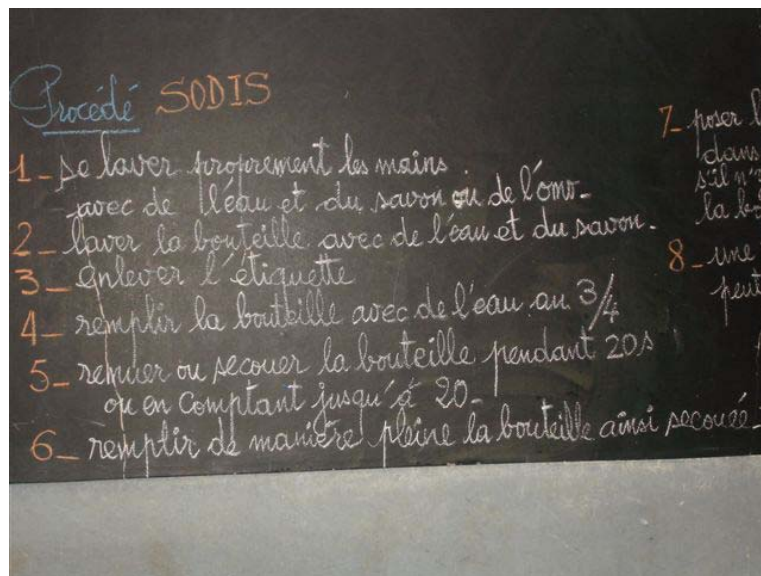 Procédé SODIS
1_ se laver proprement les mains
avec de l'eau et du savon ou de l'omo_
2_ laver la bouteille avec de l'eau et du savon.
3_ enlever l'étiquette
4_ remplir la bouteille avec de l'eau au 3/4
5_ remuer ou secouer la bouteille pendant 20s
ou en comptant jusqu'à 20_
6_ remplir de manière pleine la bouteille ainsi secouée_
7_ poser
dans
s'il
la
8_ une
peut